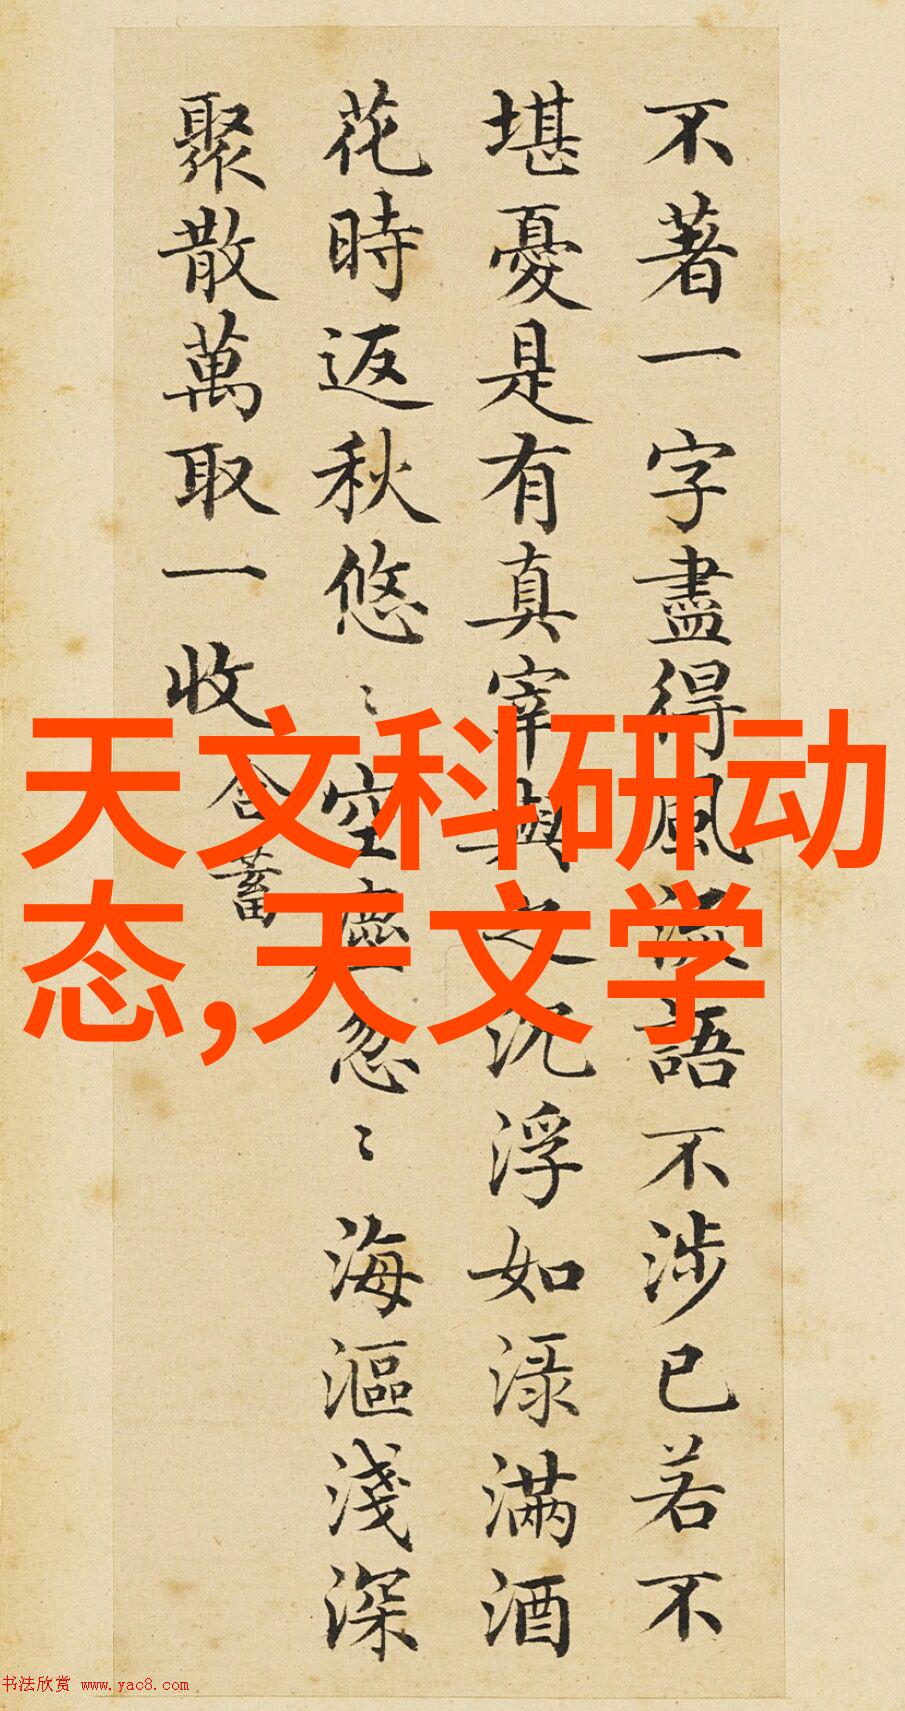 不著一字盡得風流語不涉已若不
堪憂是有真宰與之沉浮如渌滿酒
花時返秋悠〻空塵忽〻海漚淺深
聚散萬取一收 含蓄
天文科研动
态,天文学
书法欣赏 www.yac8.com